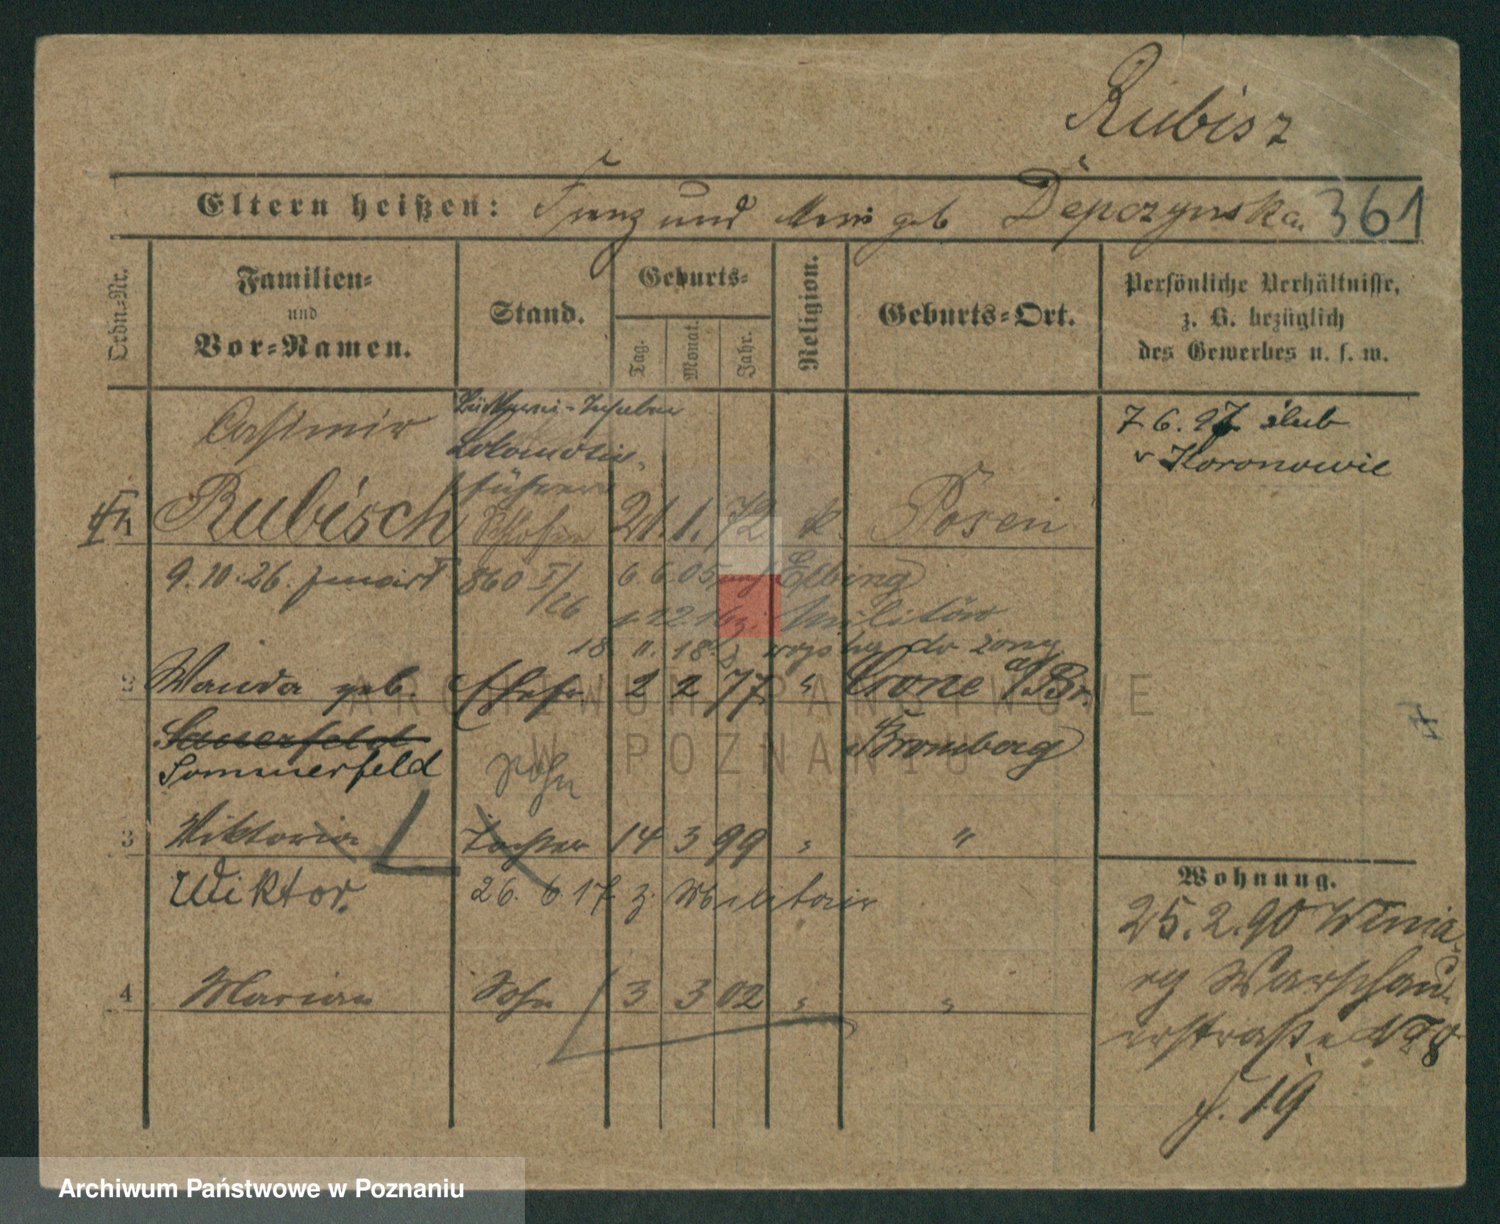 Rubisz
Eltern heißen: Franz und Marie geb Depczynska. 361
Ordn.-Nr.
Familien-
und
Vor-Namen.
Stand.
Geburts-
Tag.
Monat.
Jahr.
Religion.
Geburts-Ort.
Persönliche Verhältnisse,
z. B. bezüglich
des Gewerbes u. s. w.
Casimir
Lokomotiv-
führer
7.6.97 ślub
w Koronowie
1 Rubisch Schlosser 21. 1. 72 k Posen
9.10.26. zmarł 860 I/26 6.6.05 Elbing
Militär
18 11. 18 z wojska do żony
2 Wanda geb. Ehefr 2 2 77 " Crone a/Br.
Sauerfeld
Sommerfeld
Bromberg
Sohn
3 Wiktoria Tochter 14 3 99 " "
Wiktor. 26. 6 17 z. Militair
4 Marian Sohn 3 3 02 " "
Wohnung.
25.2.90 Winia-
ry Warschau-
erstraße
f. 19
ARCHIWUM PAŃSTWOWE
W POZNANIU
Archiwum Państwowe w Poznaniu